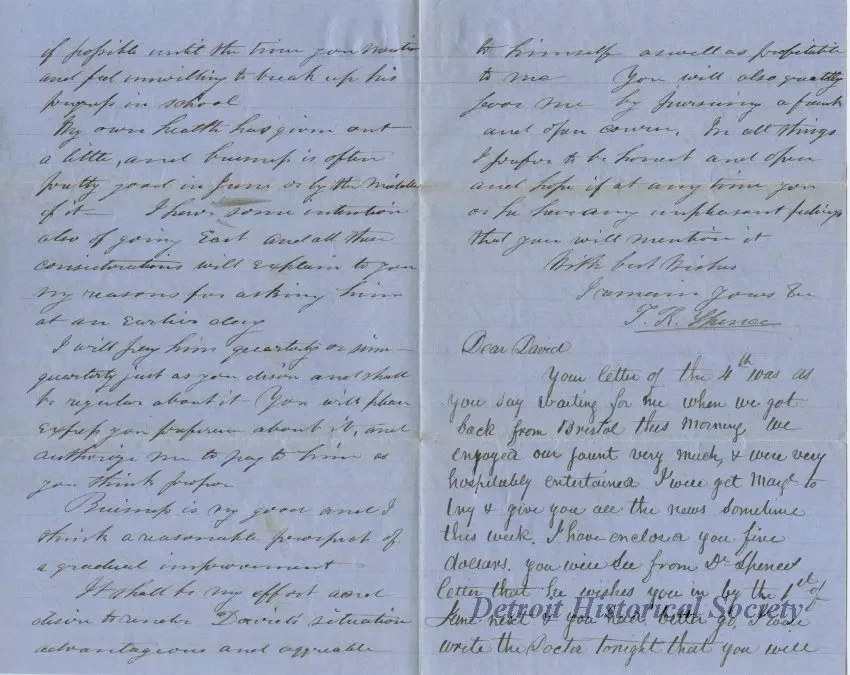 if possible until the time you mention
and feel unwilling to break up his
progress in school
My own health has given out
a little, and business is often
pretty good in June or by the middle
of it I have some intention
also of going East and all these
considerations will explain to you
my reasons for asking him
at an Earlier day
I will pay him quarterly or sim-
quarterly just as you desire and shall
be regular about it You will please
Express your preference about it, and
authorize me to pay to him as
you think proper
Business is very good and I
think a reasonable prospect of
a gradual improvement
It shall be my effort and
desire to render Davids situation
advantageous and agreeable
to himself as well as profitable
to me You will also greatly
favor me by pursuing a frank
and open course. In all things
I prefer to be honest and open
and hope if at any time you
or he have any unpleasant feelings
that you will mention it
With best Wishes
I remain Yours Tru
T. R. Spence
Dear David
Your letter of the 4th was as
you say waiting for me when we got
back from Bristol this Morning We
enjoyed our jaunt very much, & were very
hospitably entertained I will get Magt to
try & give you all the news sometime
this week. I have enclosed you five
dollars. you will see from Dr Spences
letter that he wishes you in by the 1st of
June next & you had better go I will
write the Doctor tonight that you will
Detroit Historical Society